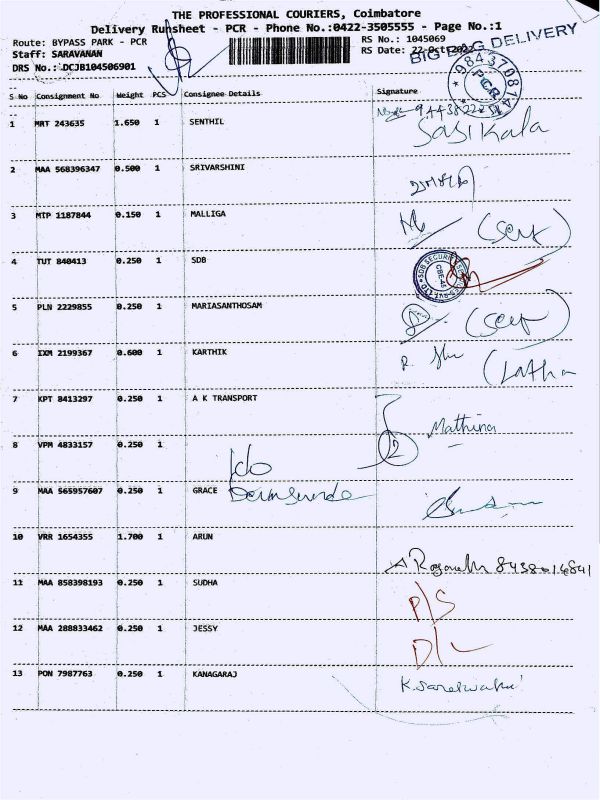 THE PROFESSIONAL COURIERS, Coimbatore
Delivery Runsheet - PCR - Phone No.:0422-3505555 - Page No.:1
Route: BYPASS PARK - PCR
RS No.: 1045069
Staff: SARAVANAN
RS Date: 22-Oct-2022
DRS No.: DCJB104506901
BIG BAG DELIVERY
PCR
S No Consignment No Weight PCS Consignee Details Signature
1 MRT 243635 1.650 1 SENTHIL Sasikala
2 MAA 568396347 0.500 1 SRIVARSHINI
3 MTP 1187844 0.150 1 MALLIGA
4 TUT 840413 0.250 1 SDB
5 PLN 2229855 0.250 1 MARIASANTHOSAM
6 IXM 2199367 0.600 1 KARTHIK (Latha
7 KPT 8413297 0.250 1 A K TRANSPORT Mathina
8 VPM 4833157 0.250 1 2
9 MAA 565957607 0.250 1 GRACE
10 VRR 1654355 1.700 1 ARUN
11 MAA 858398193 0.250 1 SUDHA P/S
12 MAA 288833462 0.250 1 JESSY D/L
13 PON 7987763 0.250 1 KANAGARAJ K. Sareswathi